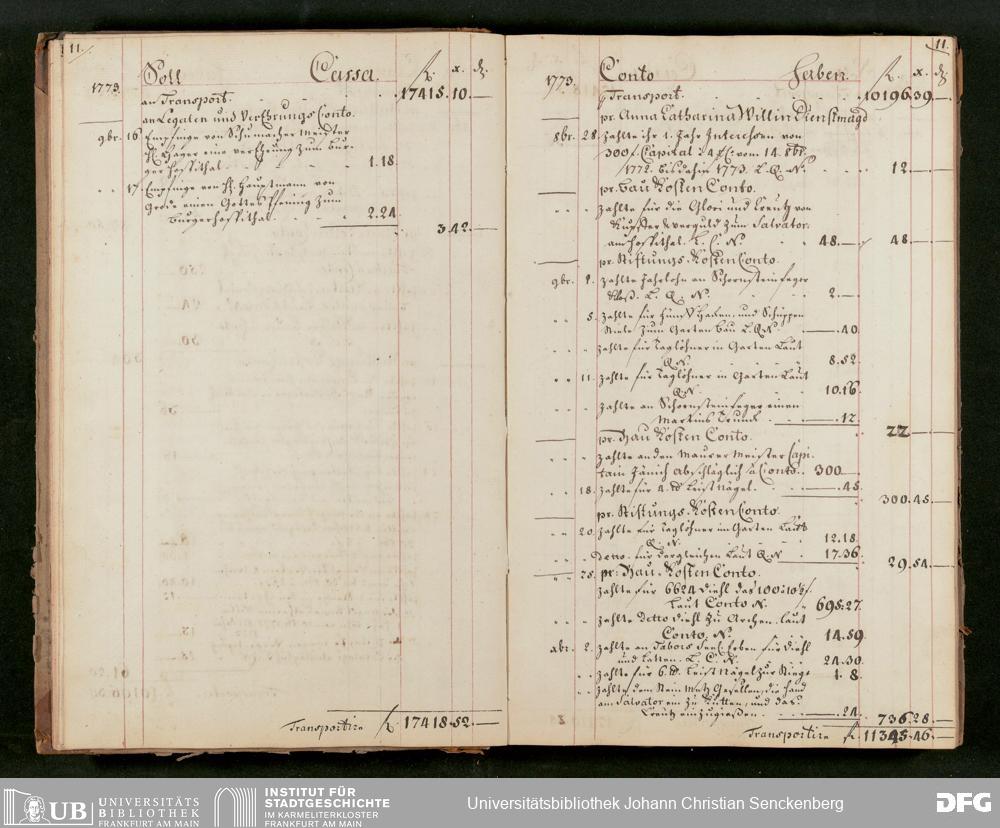 11.
Soll Cassa. fl. x. d.
1773.
an Transport. 17415.10.—
an Legaten und Verehrungs Conto.
9br. 16. Empfinge von Schumacher Meister
Hager eine Verehrung zum Bur-
gerhospithal. 1.18.
17. Empfinge von H. Hauptmann von
einen Gottes Pfennig zum
Burgerhospithal. 2.24
3.42.—
Transportire fl. 17418.52.—
11.
Conto Haben. fl. x. d.
1773.
p Transport. 10196.39.—
pr. Anna Catharina Willin Dienstmagd
8br. 28. zahlte ihr 1. Jahr Interessen von
300 f. Capital à 4 pC. vom 14. 8br.
1772. bis dahin 1773. L. Q. N. 12.—
pr. Bau Kosten Conto.
zahlte für die Glori und Creutz von
Kupffer & verguld zum Salvator
am Hospithal. L. C. N. 48.— 48.—
pr. Stiftungs Kosten Conto.
9br. 1. zahlte Jahrlohn an Schornsteinfeger
L. Q. N. 2.—
5. zahlte für Hacken und Schüppen
Stiele zum Garten Bau L. Q. N. —.40
zahlte für Taglöhner im Garten Laut
Q. N. 8.52.
11. zahlte für Taglöhner im Garten Laut
Q. N. 10.16.
zahlte an Schornsteinfeger einen
Martins Trunk —.12.
22.—
pr. Bau Kosten Conto.
zahlte an den Maurer Meister Capi-
tain Jänich abschläglich à Conto. 300.—
18. zahlte für Leistnägel. —.45
300.45.—
pr. Stiftungs Kosten Conto.
20. zahlte für Taglöhner im Garten Laut
Q. N. 12.18.
Detto für dergleichen Laut Q. N. 17.36.
29.54.—
25. pr: Bau Kosten Conto.
zahlte für 6624 Diehl das 100 : 10½ f.
Laut Conto N. 695.27.
zahlte Detto Diehl zu Archen. laut
Conto. N. 14.59
xbr. 2. zahlte an Tabors Seel. Erben für Diehl
und Latten. L. C. N. 24.30.
zahlte für 6. Leistnägel zur Stiege 1.8.
zahlte dem Stein Metz Gesellen, die Hand
am Salvator an zu Kütten, und das
Creutz einzugießen. —.24
736.28.—
Transportire fl. 11345.46.—
UB
UNIVERSITÄTS
BIBLIOTHEK
FRANKFURT AM MAIN
INSTITUT FÜR
STADTGESCHICHTE
IM KARMELITERKLOSTER
FRANKFURT AM MAIN
Universitätsbibliothek Johann Christian Senckenberg
DFG